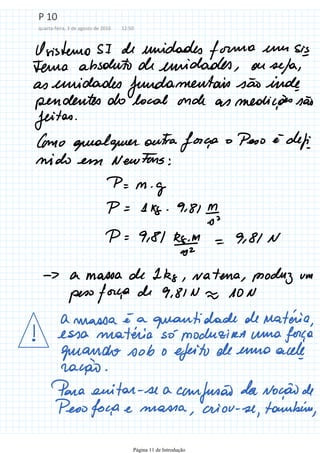 P 10
quarta-feira, 3 de agosto de 2016 12:50
O sistema SI de unidades forma um sis
tema absoluto de unidades, ou seja,
as unidades fundamentais são inde
pendentes do local onde as medições são
feitas.
Como qualquer outra força o Peso é defi
nido em Newtons:
P = m.g
P = 1 Kg . 9,81 m/s²
P = 9,81 kg.m/s² = 9,81 N
→ a massa de 1kg, na terra, produz um
peso força de 9,81 N ≈ 10 N
a massa é a quantidade de matéria,
essa matéria só produzirá uma força
quando sob o efeito de uma acele
ração.
Para evitar-se a confusão da noção de
Peso força e massa, criou-se, também,
Página 11 de Introdução